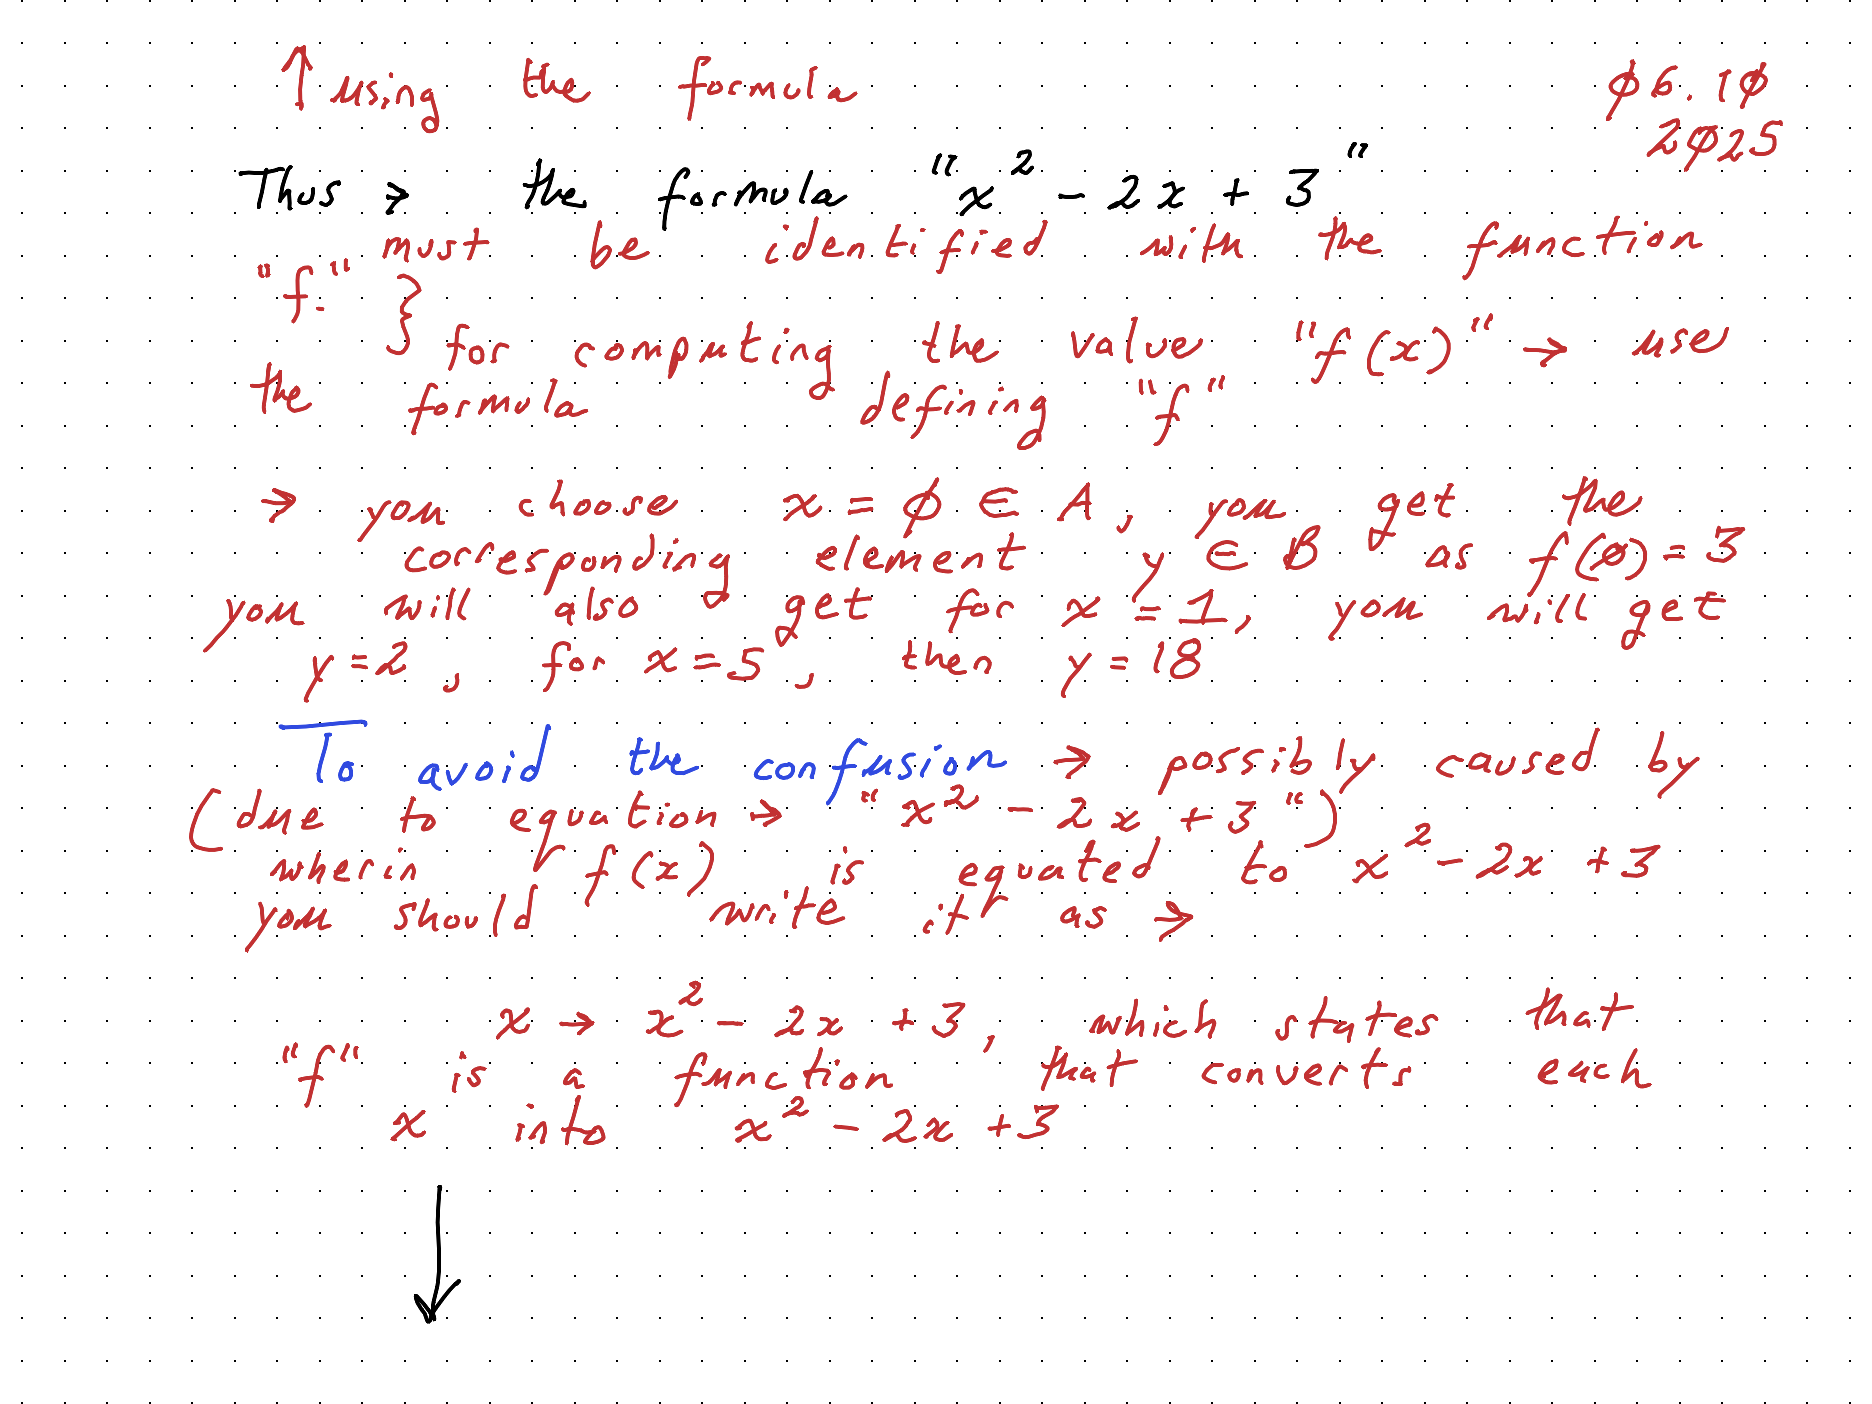 ↑ using the formula
ϕ6.1ϕ
2ϕ25
Thus → the formula "x² - 2x + 3"
must be identified with the function
"f." } for computing the value "f(x)" → use
the formula defining "f"
→ you choose x = ϕ ∈ A, you get the
corresponding element y ∈ B as f(ϕ) = 3
you will also get for x = 1, you will get
y = 2, for x = 5, then y = 18
To avoid the confusion → possibly caused by
(due to equation → "x² - 2x + 3")
wherin f(x) is equated to x² - 2x + 3
you should write it as →
x → x² - 2x + 3, which states that
"f" is a function that converts each
x into x² - 2x + 3
↓